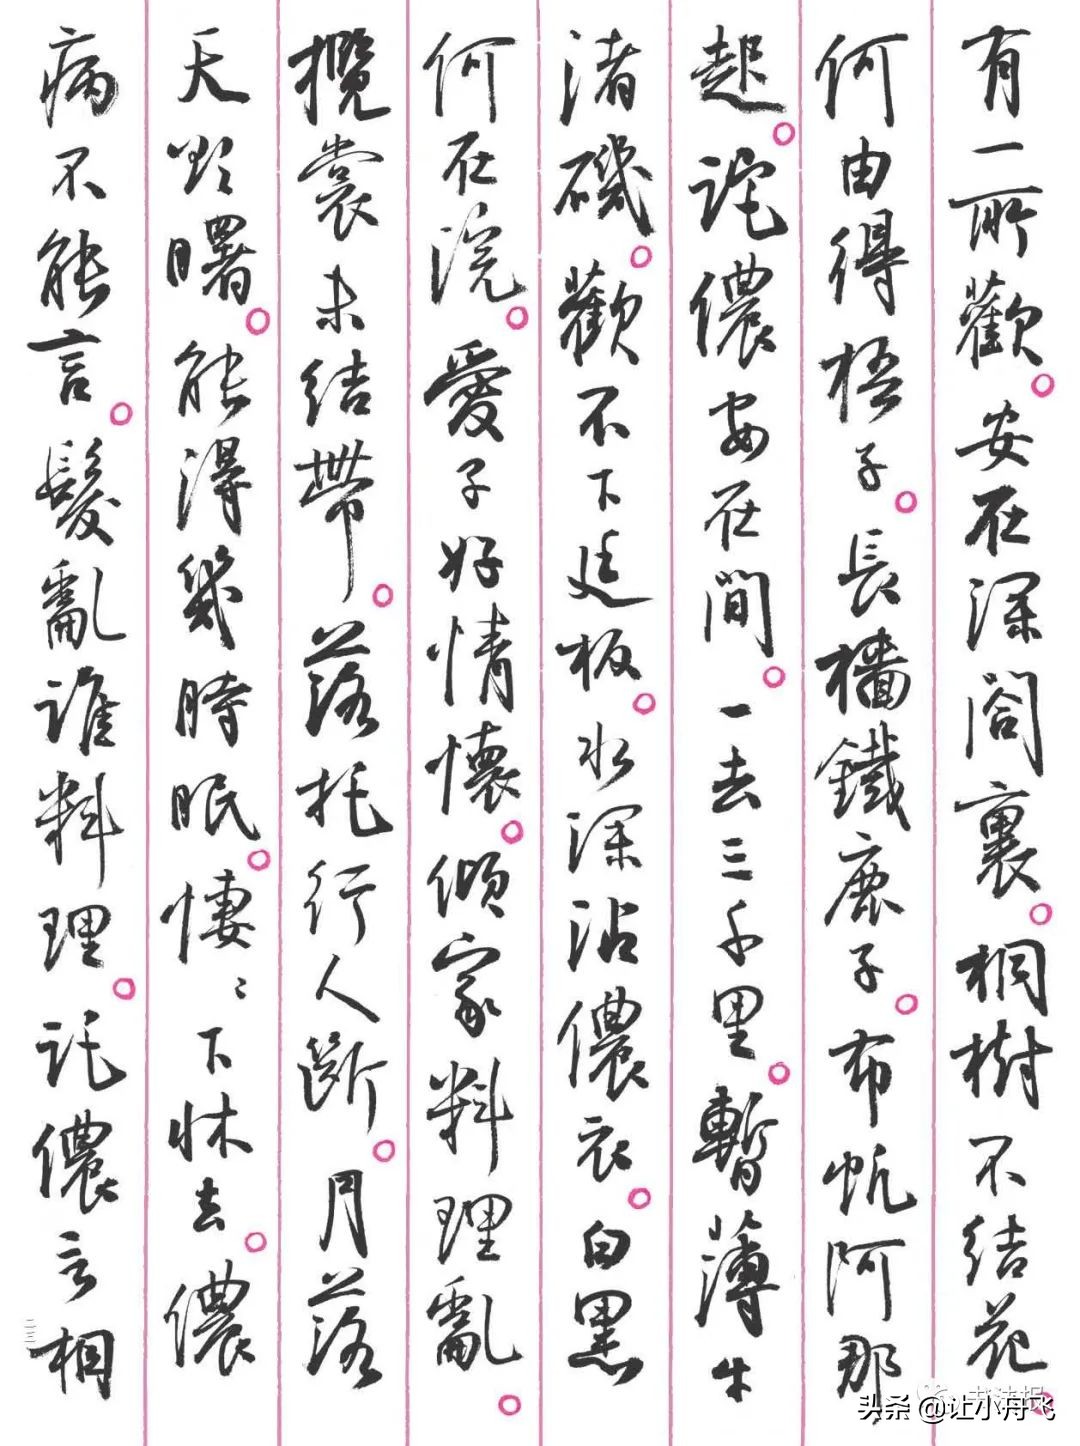 有一所歡。安在深閤裏。桐樹不結花。
何由得梧子。長檣鐵鹿子。布帆阿那
起。詫儂安在間。一去三千里。暫薄牛
渚磯。歡不下廷板。水深沾儂衣。白黑
何在浣。愛子好情懷。傾家料理亂。
攬裳未結帶。落托行人斷。月落
天欲曙。能得幾時眠。悽〻下牀去。儂
病不能言。髮亂誰料理。託儂言相
二三
书法报
头条 @让小舟飞